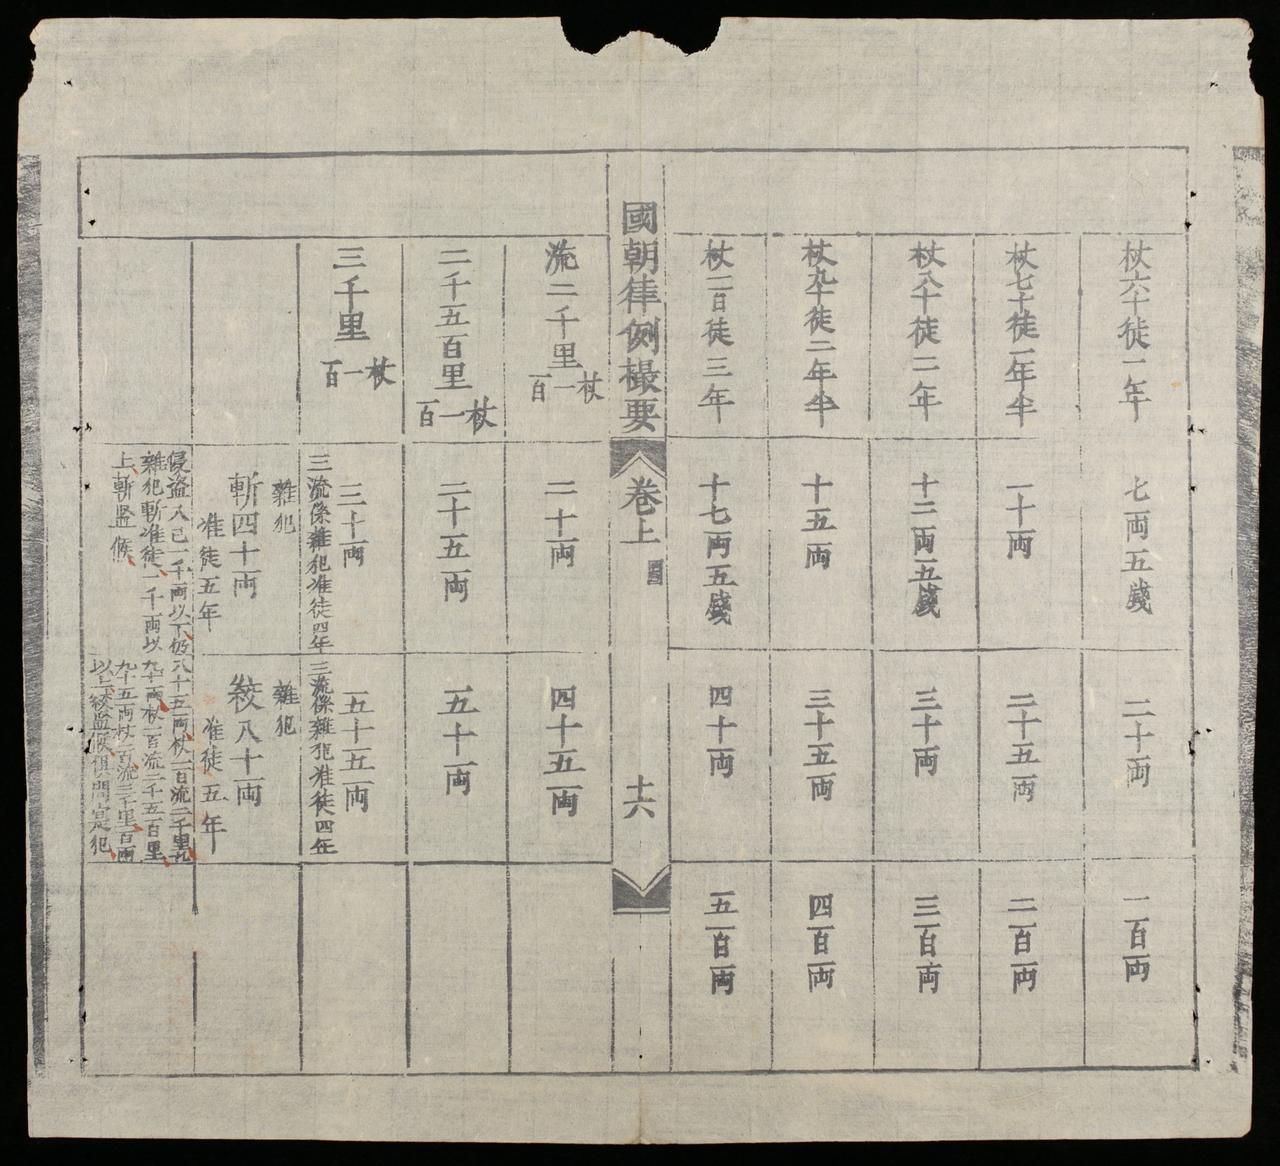 杖六十徒一年
七両五錢
二十両
一百両
杖七十徒一年半
一十両
二十五両
二百両
杖八十徒二年
十二両五錢
三十両
三百両
杖九十徒二年半
十五両
三十五両
四百両
杖一百徒三年
十七両五錢
四十両
五百両
國朝律例撮要
卷上
十六
流二千里
杖一百
二十両
四十五両
二千五百里
杖一百
二十五両
五十両
三千里
杖一百
三十両
三流係雜犯准徒四年
五十五両
三流係雜犯准徒四年
雜犯
斬四十両
准徒五年
雜犯
絞八十両
准徒五年
侵盜入己一千両以下仍
雜犯斬准徒一千両以
上斬監候
八十五両杖一百流二千里九
九十両杖一百流二千五百里
九十五両杖一百流三千里百両
以上絞監候俱問寔犯